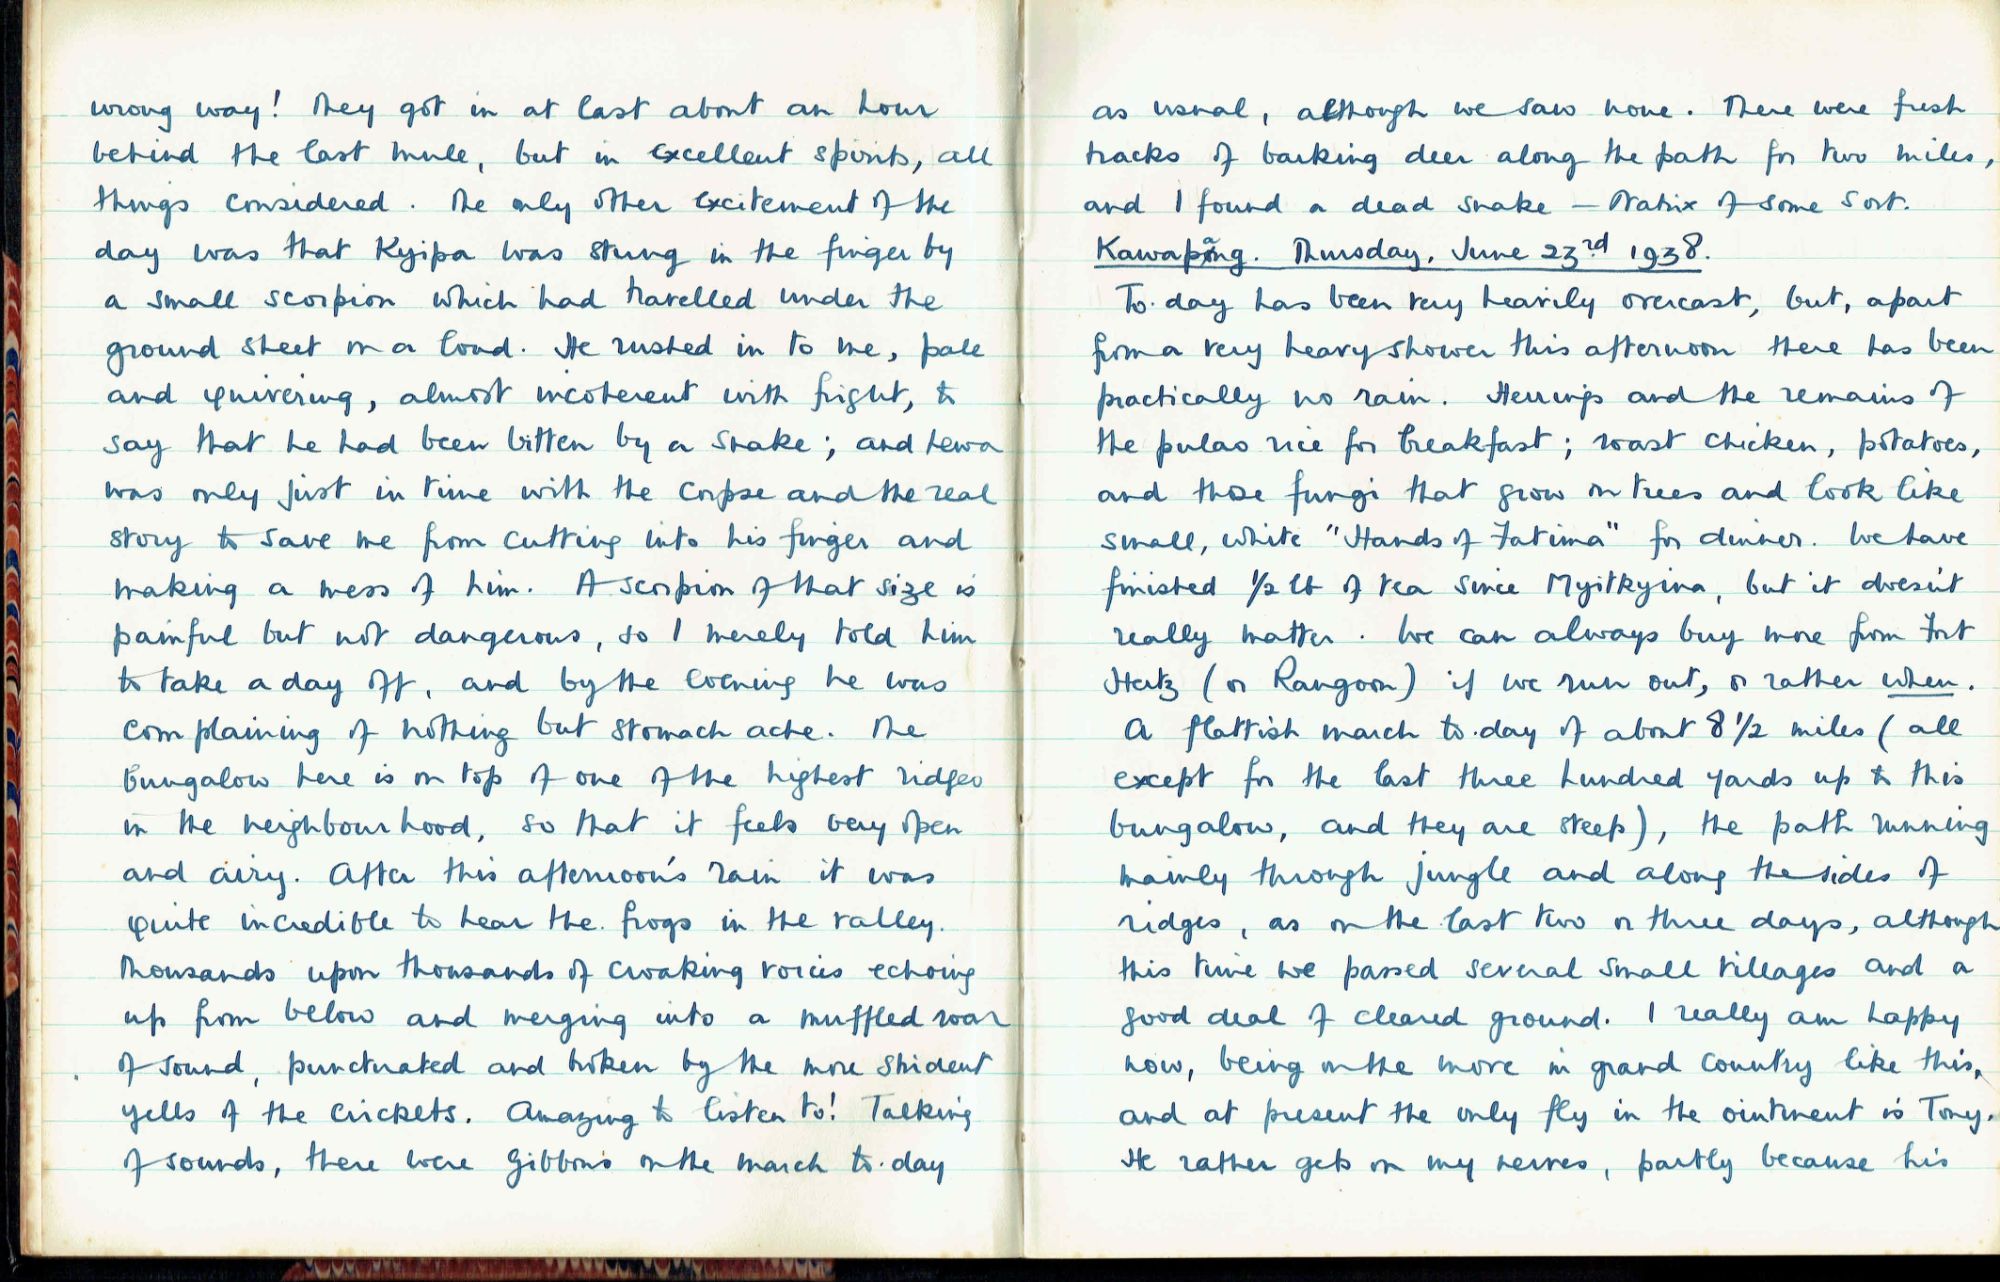 wrong way! They got in at last about an hour
behind the last mule, but in excellent spirits, all
things considered. The only other excitement of the
day was that Kyipa was stung in the finger by
a small scorpion which had travelled under the
ground sheet on a load. He rushed in to me, pale
and quivering, almost incoherent with fright, to
say that he had been bitten by a snake; and Tewa
was only just in time with the corpse and the real
story to save me from cutting into his finger and
making a mess of him. A scorpion of that size is
painful but not dangerous, so I merely told him
to take a day off, and by the evening he was
complaining of nothing but stomach ache. The
bungalow here is on top of one of the highest ridges
in the neighbourhood, so that it feels very open
and airy. After this afternoon's rain it was
quite incredible to hear the frogs in the valley.
Thousands upon thousands of croaking voices echoing
up from below and merging into a muffled roar
of sound, punctuated and broken by the more strident
yells of the crickets. Amazing to listen to! Talking
of sounds, there were gibbons on the march to-day
as usual, although we saw none. There were fresh
tracks of barking deer along the path for two miles,
and I found a dead snake – Natrix of some sort.
Kawapang. Thursday, June 23rd 1938.
To-day has been very heavily overcast, but, apart
from a very heavy shower this afternoon there has been
practically no rain. Herrings and the remains of
the pulao rice for breakfast; roast chicken, potatoes,
and those fungi that grow on trees and look like
small, white "Hands of Fatima" for dinner. We have
finished 1/2 lb of tea since Myitkyina, but it doesn't
really matter. We can always buy more from Fort
Hertz (or Rangoon) if we run out, or rather when.
A flattish march to-day of about 8 1/2 miles (all
except for the last three hundred yards up to this
bungalow, and they are steep), the path running
mainly through jungle and along the sides of
ridges, as on the last two or three days, although
this time we passed several small villages and a
good deal of cleared ground. I really am happy
now, being on the move in grand country like this,
and at present the only fly in the ointment is Tony.
He rather gets on my nerves, partly because his